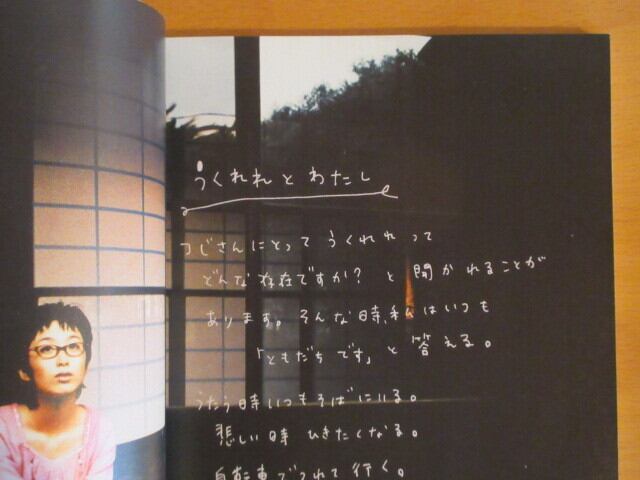 うくれれとわたし
つじさんにとって うくれれって
どんな存在ですか？と聞かれることが
あります。そんな時、私はいつも
「ともだちです」と答える。
うたう時いつもそばにいる。
悲しい時 ひきたくなる。
自転車でつれて行く。